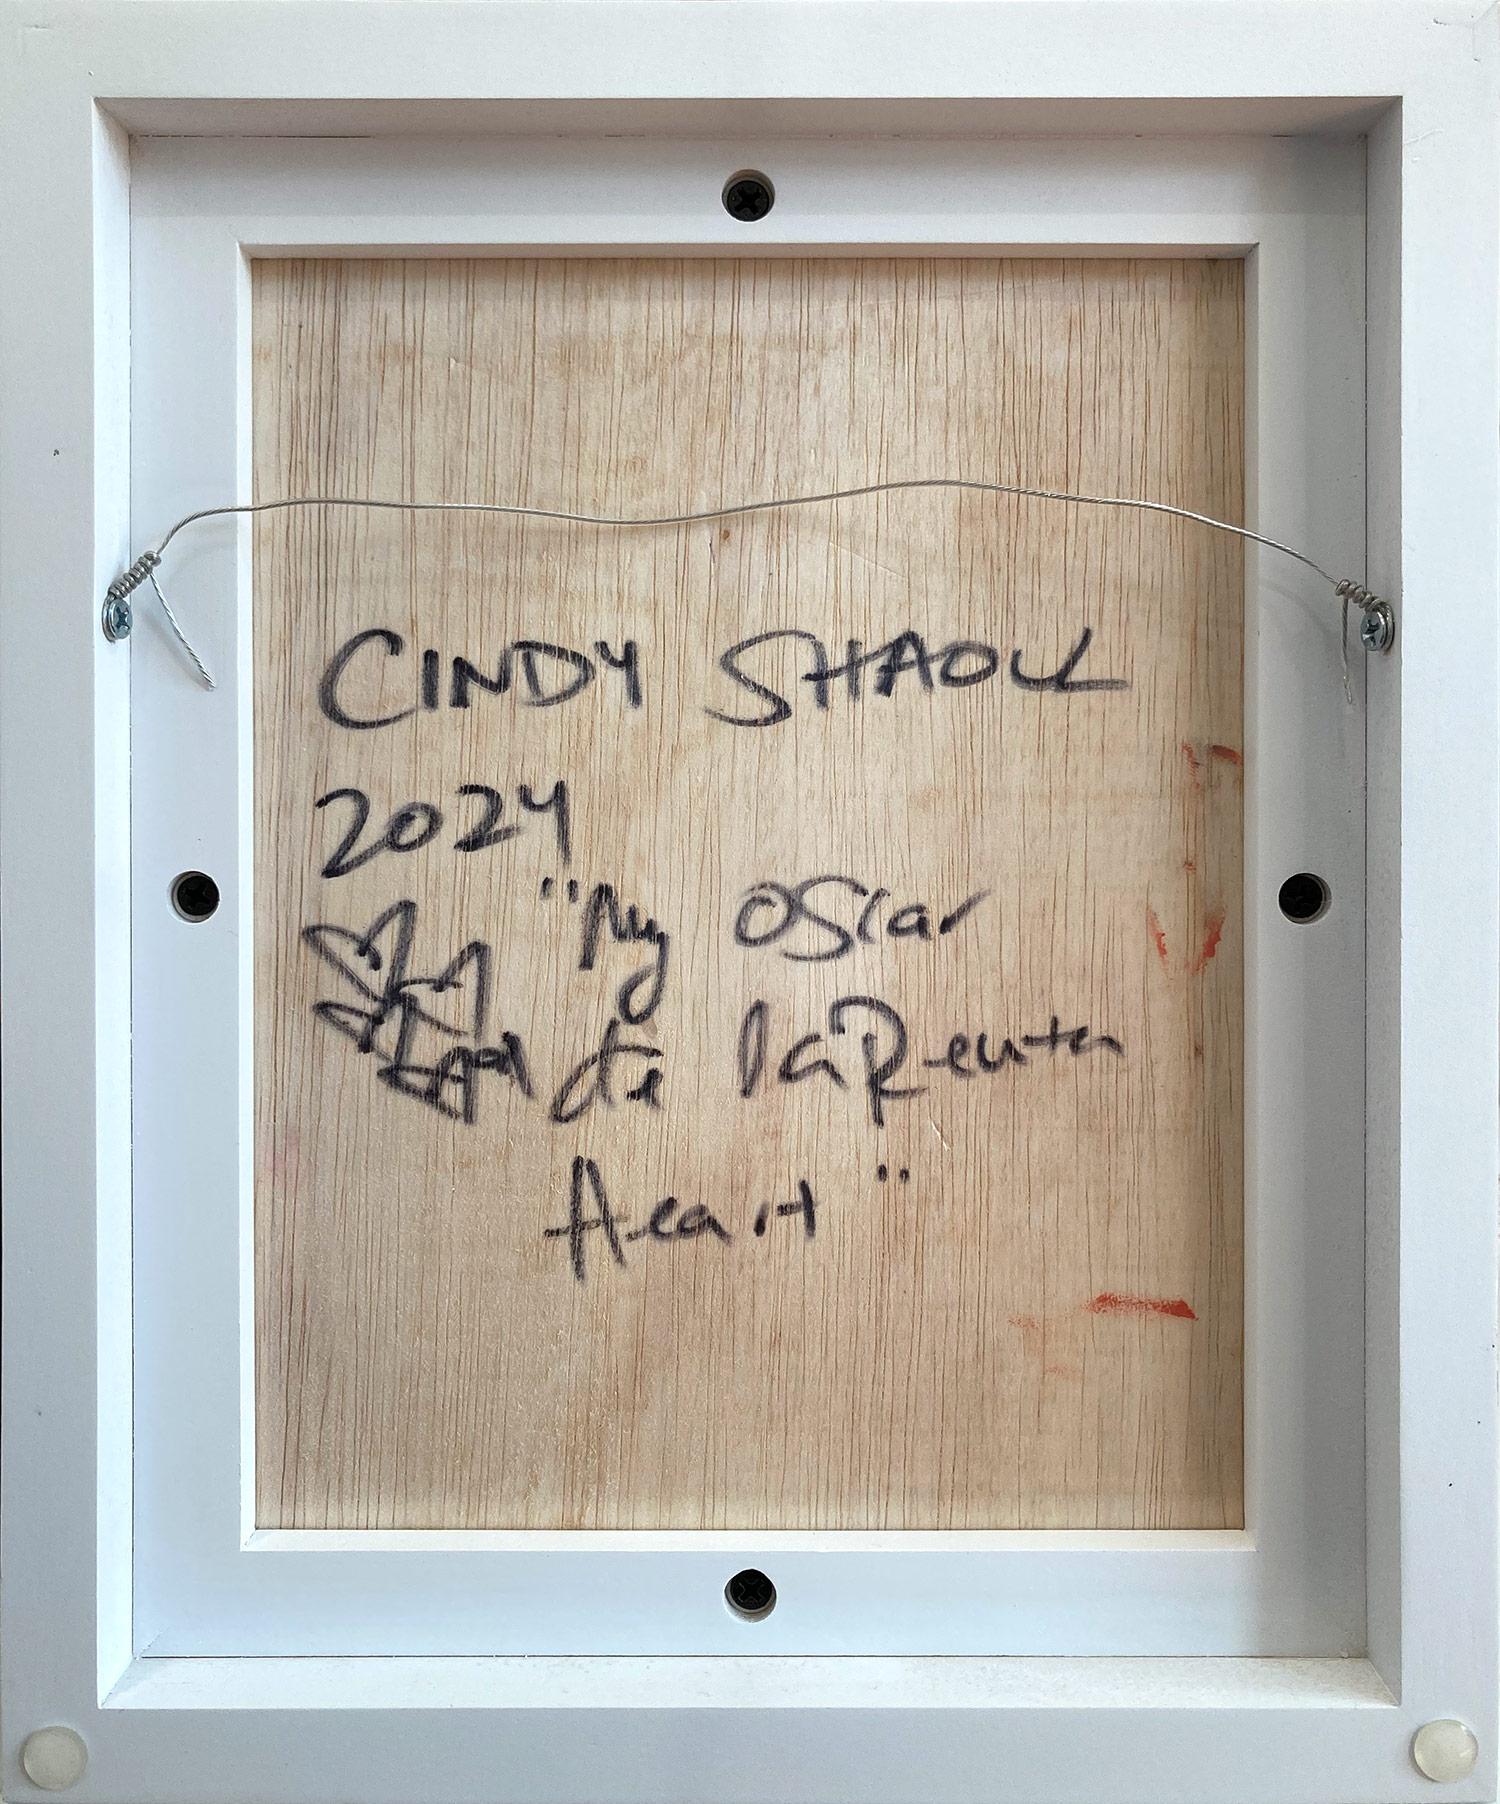 CINDY SHAOUL
2024
"My Oscar
de la Renta
Heart"